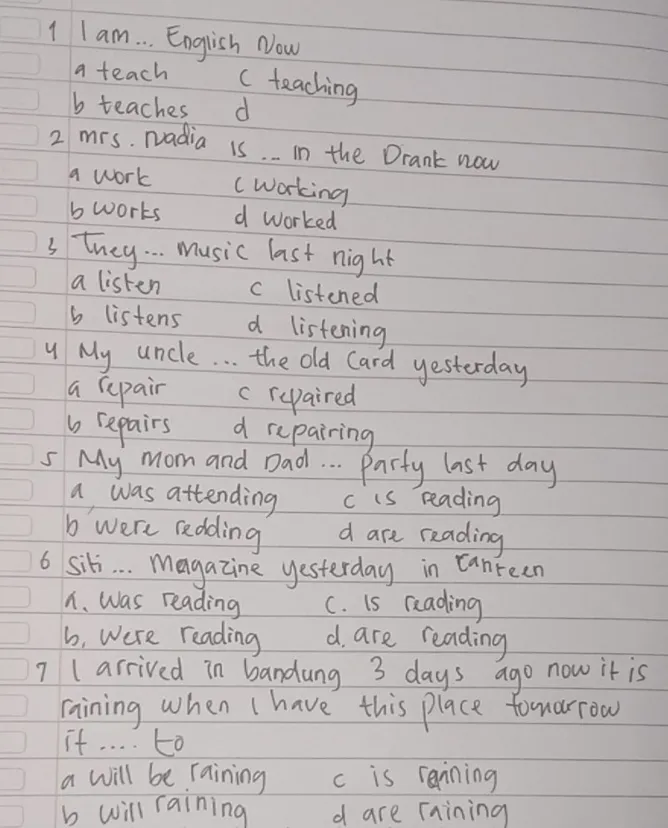 1 I am... English Now
a teach c teaching
b teaches d
2 mrs. Nadia is ... in the Drank now
a work c working
b works d worked
3 They... music last night
a listen c listened
b listens d listening
4 My uncle ... the old Card yesterday
a repair c repaired
b repairs d repairing
5 My mom and Dad ... party last day
a was attending c is reading
b were redding d are reading
6 Siti ... Magazine yesterday in canteen
a. was reading c. Is reading
b. were reading d. are reading
7 I arrived in bandung 3 days ago now it is
raining when I have this place tomorrow
it .... to
a will be raining c is raining
b will raining d are raining